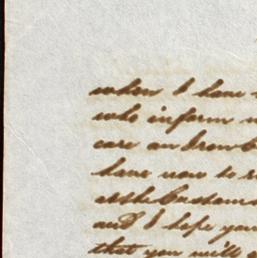 when I have
who inform
care an
have now to
at the Customs
and I hope you
that you will